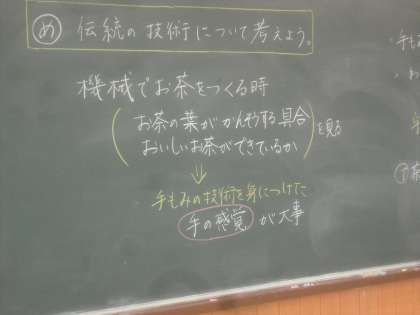 め 伝統の技術について考えよう。
機械でお茶をつくる時
お茶の葉がかんそうする具合
おいしいお茶ができているか
を見る
⇓
手もみの技術を身につけた
手の感覚が大事
手も